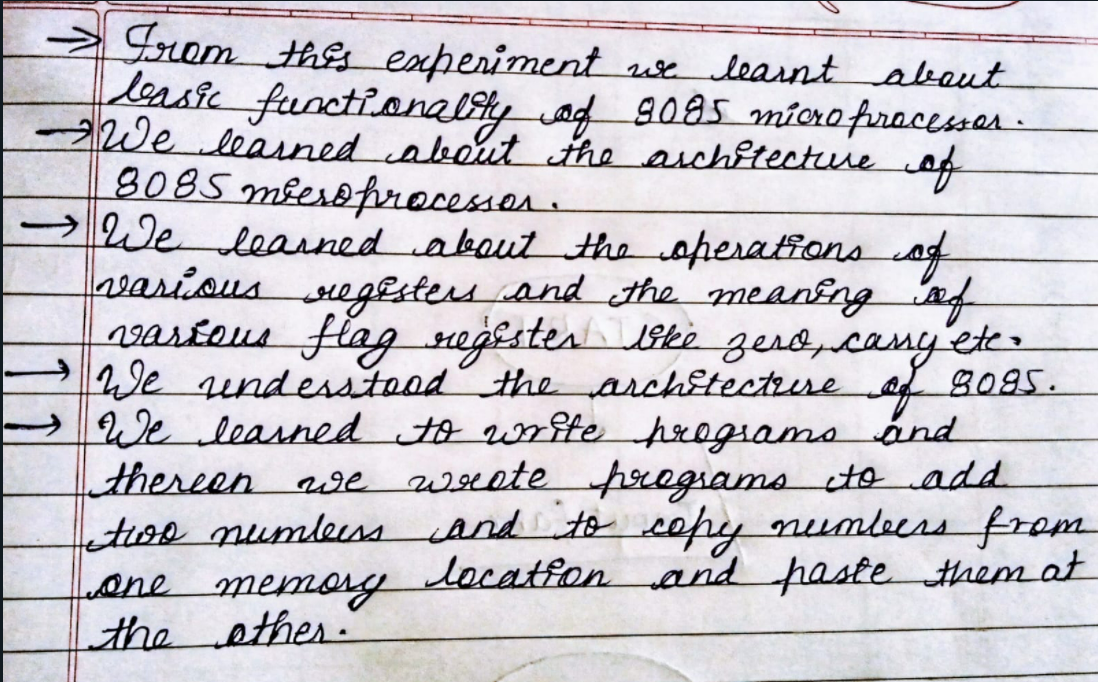 → From this experiment we learnt about
basic functionality of 8085 microprocessor.
→ We learned about the architecture of
8085 microprocessor.
→ We learned about the operations of
various registers and the meaning of
various flag register like zero, carry etc.
→ We understood the architecture of 8085.
→ We learned to write programs and
thereon we wrote programs to add
two numbers and to copy numbers from
one memory location and paste them at
the other.